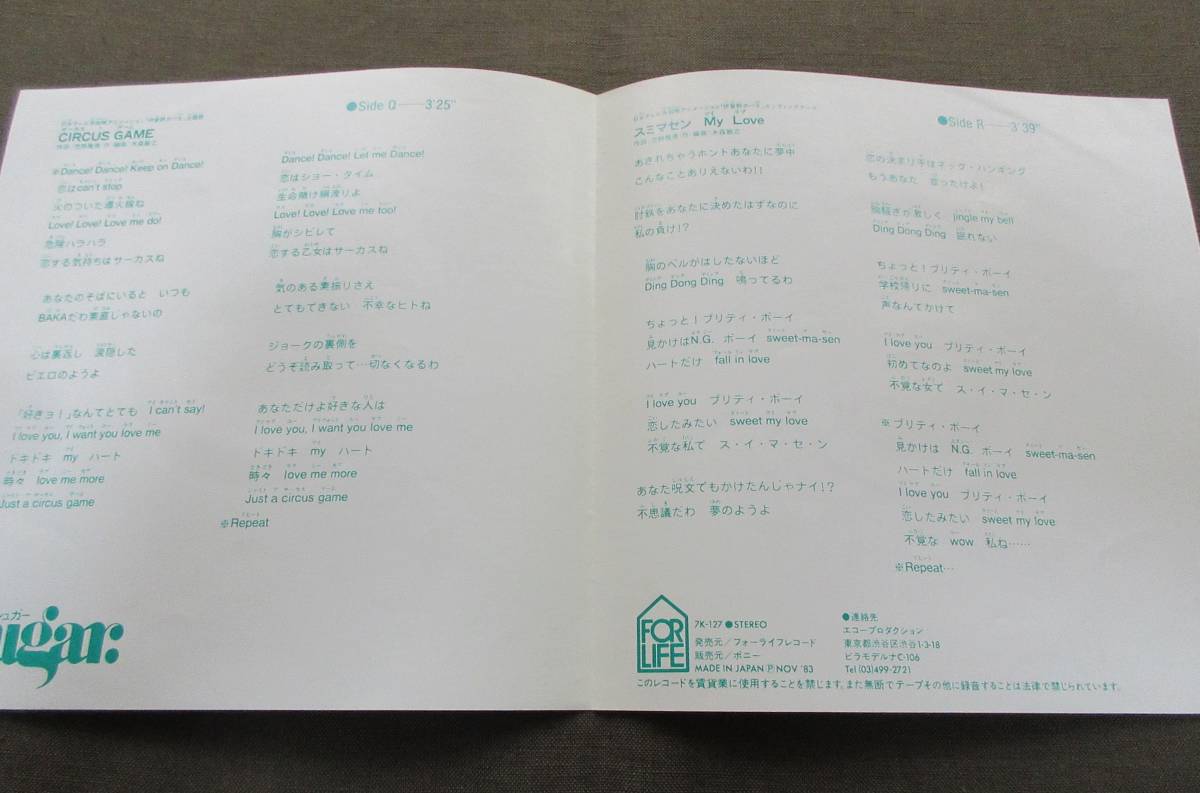 ●Side Q——3'25"
CIRCUS GAME
※Dance! Dance! Keep on Dance!
恋はcan't stop
火のついた導火線ね
Love! Love! Love me do!
危険ハラハラ
恋する気持ちはサーカスね
あなたのそばにいると いつも
BAKAだわ素直じゃないの
心は裏返し 涙隠した
ピエロのようよ
「好きョ!」なんてとても I can't say!
I love you, I want you love me
ドキドキ my ハート
時々 love me more
Just a circus game
Dance! Dance! Let me Dance!
恋はショー・タイム
生命賭け綱渡りよ
Love! Love! Love me too!
胸がシビレて
恋する乙女はサーカスね
気のある素振りさえ
とてもできない 不幸なヒトね
ジョークの裏側を
どうぞ読み取って…切なくなるわ
あなただけよ好きな人は
I love you, I want you love me
ドキドキ my ハート
時々 love me more
Just a circus game
※Repeat
シュガー
ugar:
スミマセン My Love
●Side R——3'39"
あきれちゃうホントあなたに夢中
こんなことありえないわ!!
肘鉄をあなたに決めたはずなのに
私の負け!?
胸のベルがはしたないほど
Ding Dong Ding 鳴ってるわ
ちょっと!プリティ・ボーイ
見かけはN.G. ボーイ sweet-ma-sen
ハートだけ fall in love
I love you プリティ・ボーイ
恋したみたい sweet my love
不覚な私で ス・イ・マ・セ・ン
あなた呪文でもかけたんじゃナイ!?
不思議だわ 夢のようよ
恋の決まり手はネック・ハンギング
もうあなた 奪ったけよ!
胸騒ぎが激しく jingle my bell
Ding Dong Ding 眠れない
ちょっと!プリティ・ボーイ
学校帰りに sweet-ma-sen
声なんてかけて
I love you プリティ・ボーイ
初めてなのよ sweet my love
不覚な女で ス・イ・マ・セ・ン
※プリティ・ボーイ
見かけは N.G. ボーイ sweet-ma-sen
ハートだけ fall in love
I love you プリティ・ボーイ
恋したみたい sweet my love
不覚な wow 私ね……
※Repeat…
FOR LIFE
7K-127 ●STEREO
発売元/フォーライフレコード
販売元/ポニー
MADE IN JAPAN Ⓟ NOV '83
●連絡先
エコープロダクション
東京都渋谷区渋谷1-3-18
ビラモデルナC-106
Tel (03)499-2721
このレコードを賃貸業に使用することを禁じます。また無断でテープその他に録音することは法律で禁じられています。